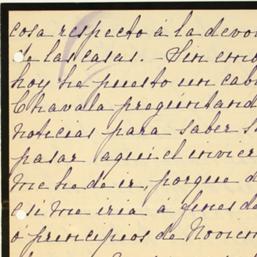 cosa respecto á la devo
de las casas. - Sin em
hoy he puesto un cab
Chavala preguntand
noticias para saber s
pasar aqui el invier
me he de ir, porque d
asi me iria á fines d
ó principios de Noviem